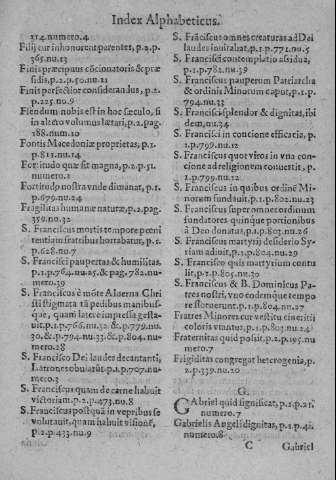 Index Alphabeticus.
314.numero.4
Filij cur inhonorent parentes, p.2.p.
365.nu.13
Finis præcipuus cōcionatoris & præ
sidis, p.2.p.50.nu.21
Finis perfectior considerandus, p.2.
p.225.nu.9
Flendum nobis est in hoc sæculo, si
in altero volumus lætari, p.2.pag.
188.num.10
Fontis Macedoniæ proprietas, p.1.
p.811.nu.14
Fortitudo quæ sit magna, p.2.p.51.
numero.1
Fortitudo nostra vnde dimanat, p.1.
p.679.nu.24
Fragilitas humanæ naturæ, p.2.pag.
359.nu.32
S. Franciscus mortis tempore pœni
tentiam fratribus hortabatur, p.1.
p.628.nu.7
S. Francisci paupertas & humilitas.
p.1.p.764.nu.25.& pag.782.nu-
mero.39
S. Franciscus è mōte Aluerna Chri
sti stigmata tā pedibus manibus-
que, quam latere impressa gesta-
uit.p.1.p.766.nu.32.& p.779.nu.
30.& p.794.nu.33.& p.804.nu-
mero.28
S. Francisco Dei laudes decantanti,
Latrones obuiarūt.p.1.p.707.nu-
mero.3
S. Franciscus quam de carne habuit
victoriam.p.2.p.473.nu.8
S. Franciscus postquā in vepribus se
volutauit, quam habuit visionē,
p.2.p.433.nu.9
S. Frāciscus omnes creaturas ad Dei
laudes inuitabat.p.1.p.771.nu.5
S. Francisci contemplatio assidua,
p.1.p.782.nu.39
S. Franciscus pauperum Patriarcha
& ordinis Minorum caput, p.1.p.
794.nu.33
S. Francisci splendor & dignitas, ibi
dem, nu.34
S. Francisci in concione efficacia, p.
1.p.799.nu.12
S. Franciscus quot viros in vna con-
cione ad religionem conuertit, p.
1.p.799.nu.12
S. Franciscus in quibus ordinē Mi-
norum fundauit.p.1.p.802.nu.23
S. Franciscus super omnes ordinum
fundatores quinque portionibus
à Deo donatus, p.1.p.803.nu.26
S. Franciscus martyrij desiderio Sy-
riam adiuit, p.1.p.804.nu.29
S. Francisco quis martyrium contu
lit, p.1.p.805.nu.30
S. Franciscus & B. Dominicus Pa-
tres nostri, vno eodemque tempo
re floruerunt.p.1.p.804.nu.27
Fratres Minores cur vestitu cineritij
coloris vtantur, p.1.p.803.nu.24
Fraternitas quid possit.p.2.p.195.nu
mero.7
Frigiditas congregat heterogenia, p.
2.p.339.nu.20
G.
Gabriel quid significat, p.1.p.21.
numero.7
Gabrielis Angeli dignitas, p.1.p.41.
numero.8
C Gabriel